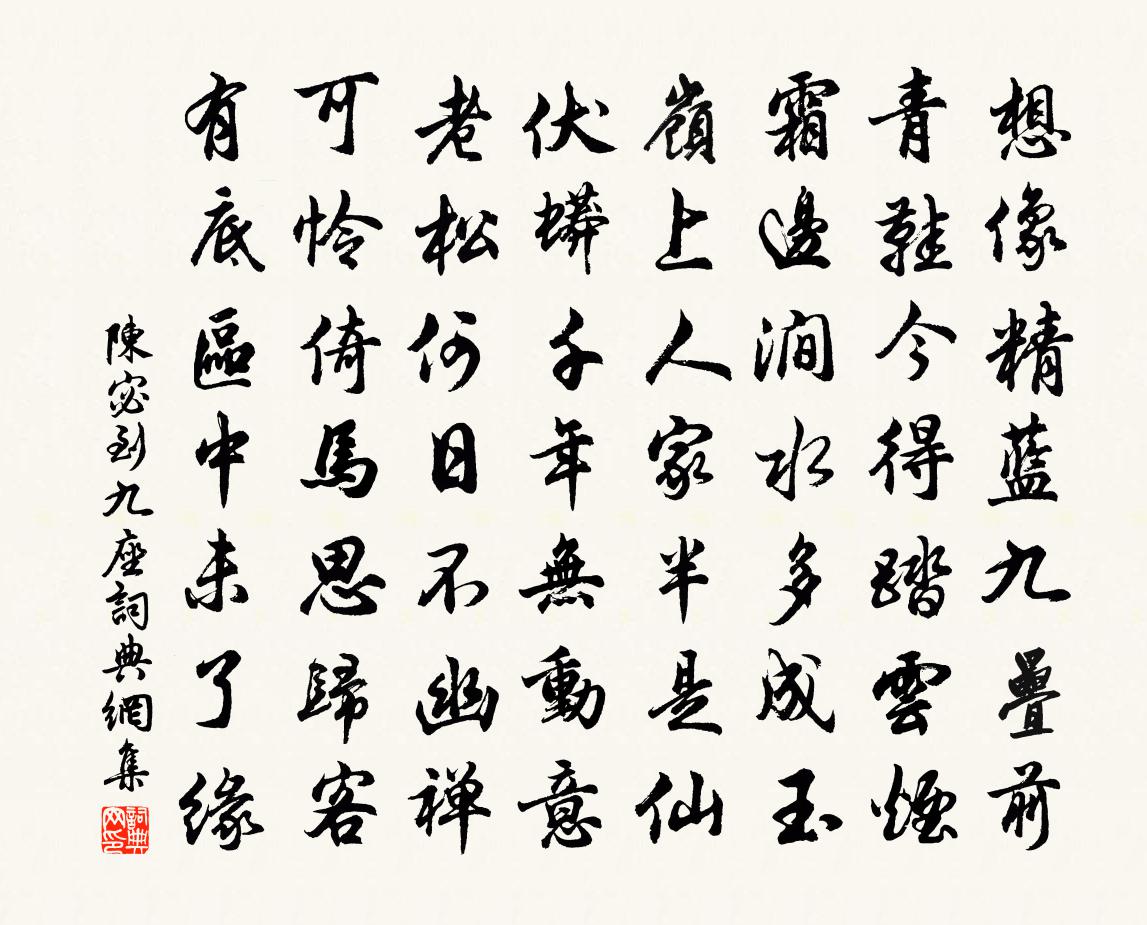 想像精藍九疊前
青鞋今得踏雲煙
霜邊澗水多成玉
嶺上人家半是仙
伏蟒千年無動意
老松何日不幽禅
可怜倚馬思歸客
有底區中未了緣
陳宓到九座詞典網集
詞典
网印